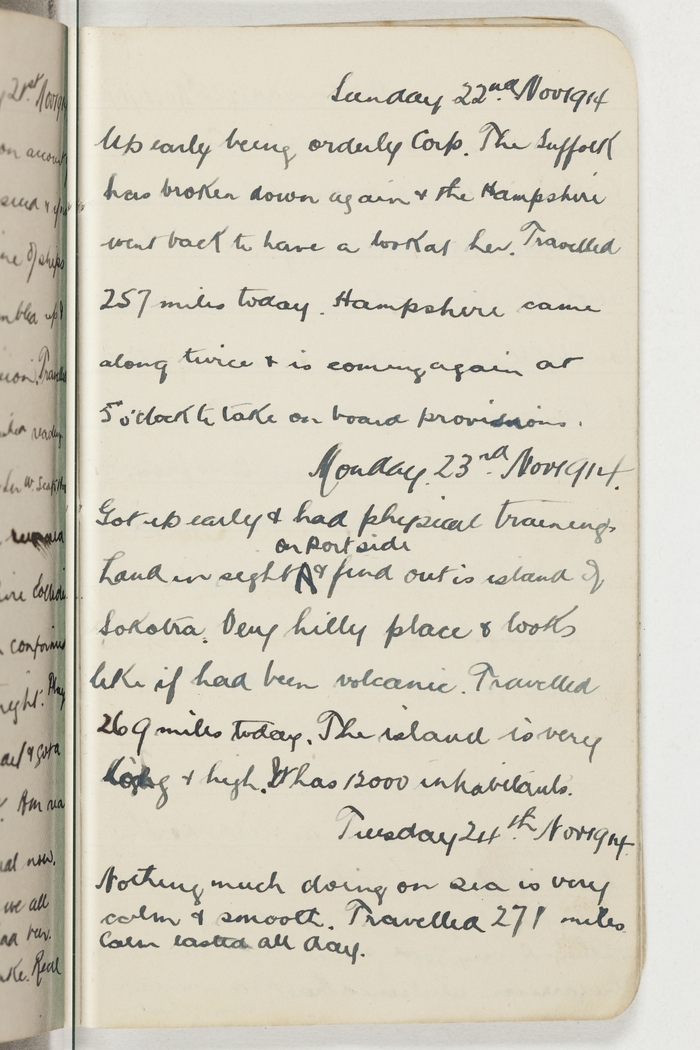 Sunday 22nd Nov 1914
Up early being orderly Corp. The Suffolk
has broken down again & the Hampshire
went back to have a look at her. Travelled
257 miles today. Hampshire came
along twice & is coming again at
5 o'clock to take on board provisions.
Monday 23rd Nov 1914.
Got up early & had physical training.
on Port side
Land in sight & find out is island of
Sokotra. Very hilly place & looks
like if had been volcanic. Travelled
269 miles today. The island is very
long & high. It has 12000 inhabitants.
Tuesday 24th Nov 1914.
Nothing much doing on sea is very
calm & smooth. Travelled 271 miles
Calm lasted all day.